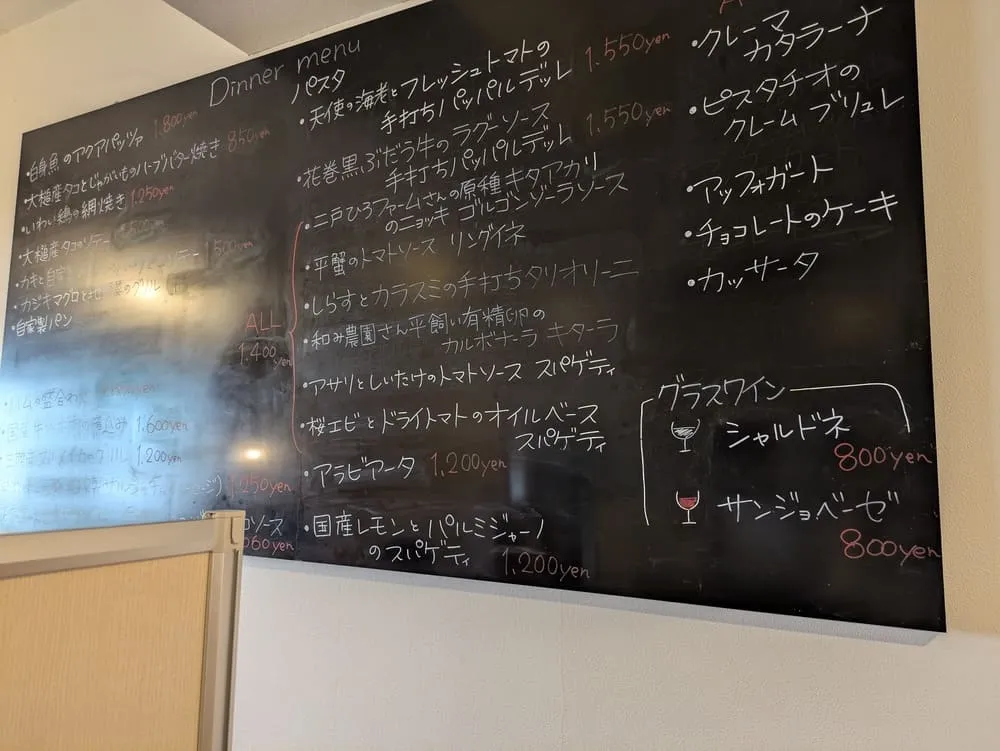 Dinner menu
・白身魚のアクアパッツァ 1.800yen
・大槌産タコとじゃがいものハーブバター焼き 850yen
・いわい鶏の網焼き 1.250yen
・大槌産タコのソテー
・カキと自家 1.500yen
・カジキマグロと のグリル
・自家製パン
の盛合わせ
煮込み 1.600yen
1.200yen
1.050yen
ソース
パスタ
・天使の海老とフレッシュトマトの
手打ちパッパルデッレ 1.550yen
・花巻黒ぶだう牛のラグーソース
手打ちパッパルデッレ 1.550yen
ALL
1.400yen
・二戸ひろファームさんの原種キタアカリ
のニョッキ ゴルゴンゾーラソース
・平蟹のトマトソース リングイネ
・しらすとカラスミの手打ちタリオリーニ
・和み農園さん平飼い有精卵の
カルボナーラ キターラ
・アサリとしいたけのトマトソース スパゲティ
・桜エビとドライトマトのオイルベース
スパゲティ
・アラビアータ 1.200yen
・国産レモンとパルミジャーノ
のスパゲティ 1.200yen
・クレーマ
カタラーナ
・ピスタチオの
クレームブリュレ
・アッフォガート
・チョコレートのケーキ
・カッサータ
グラスワイン
シャルドネ
800yen
サンジョベーゼ
800yen